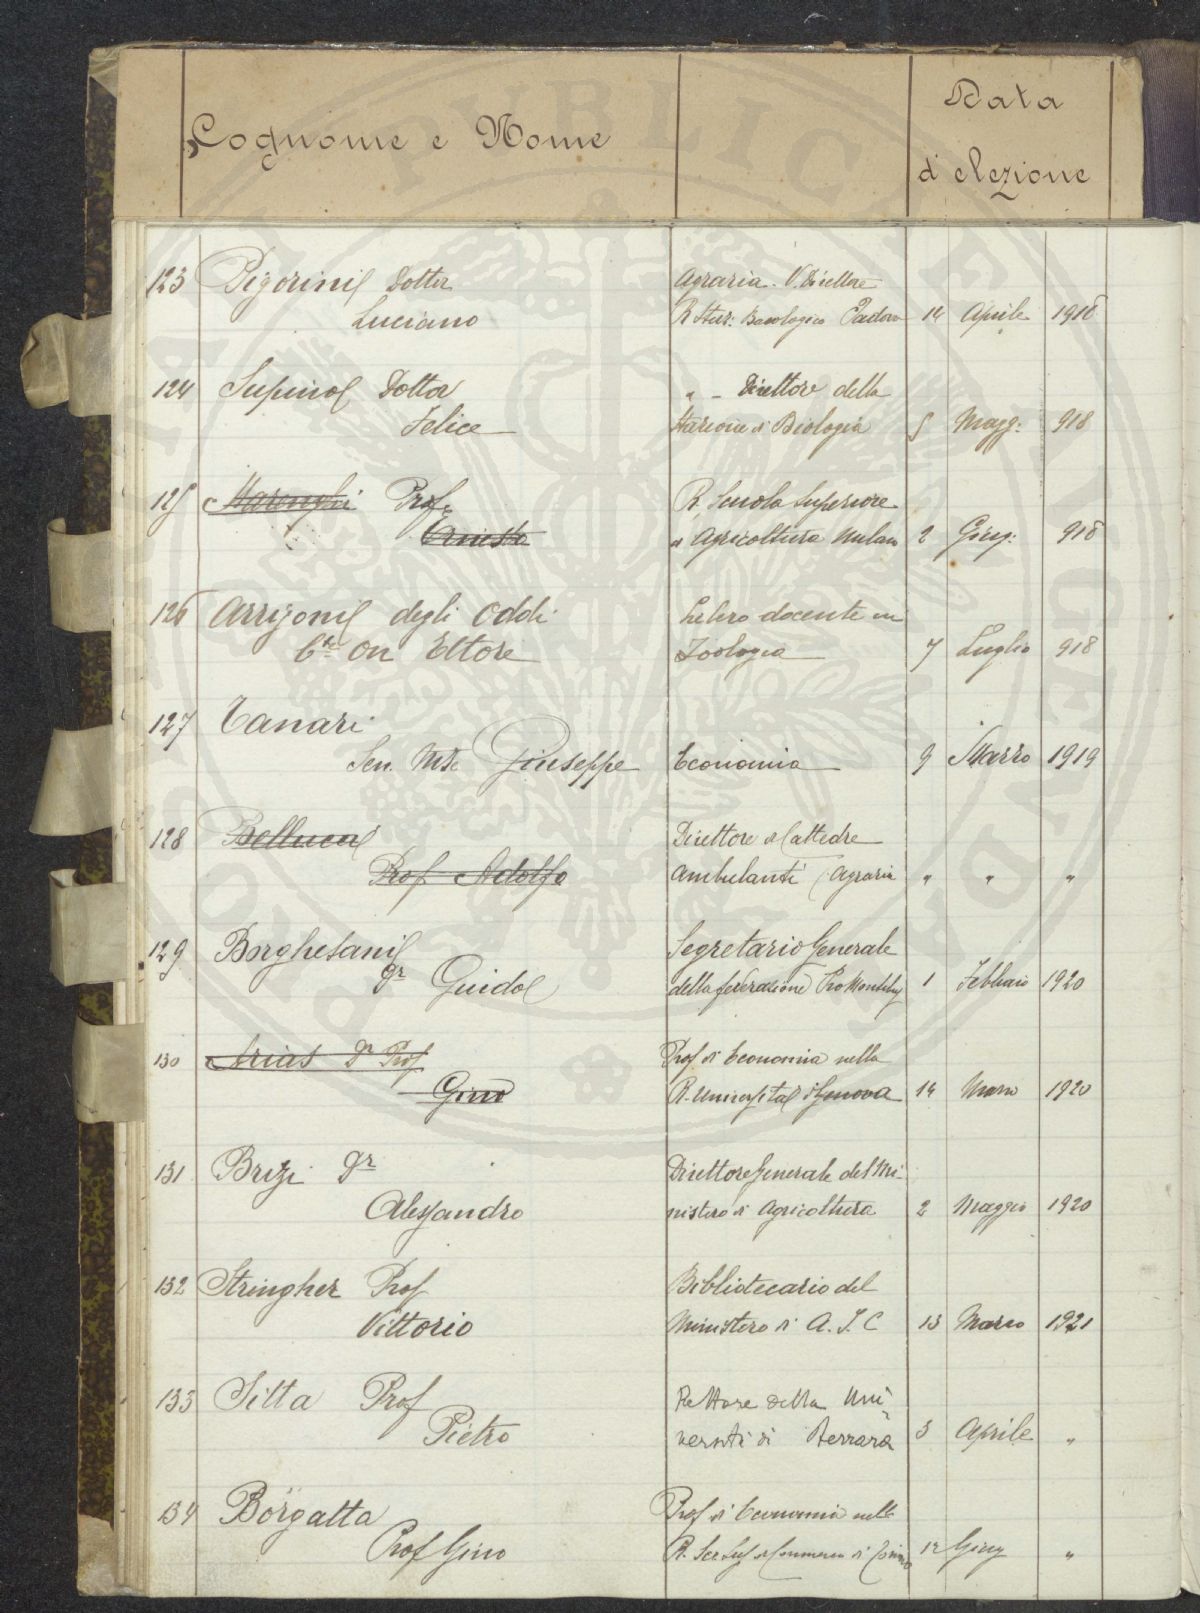 Cognome e Nome
Data
d'elezione
123 Pigorini Dottor
Luciano
Agraria. V. Direttore
R. Staz. Bacologica Padova 14 Aprile 1918
124 Supino Dottor
Felice
" - Direttore della
Stazione di Biologia 5 Magg: 918
125 Marenghi Prof.
Ernesto
R. Scuola Superiore
di Agricoltura Milano 2 Giug: 918
126 Arrigoni degli Oddi
Cte On Ettore
Libero docente in
Zoologia 7 Luglio 918
127 Tanari
Sen. Mse Giuseppe Economia 9 Marzo 1919
128 Bellucci
Prof Adolfo
Direttore di Cattedre
Ambulanti Agraria " " "
129 Borghesani
Dr Guido
Segretario Generale
della federazione Pro Montibus 1 Febbraio 1920
130 Arias Dr Prof
Gino
Prof di Economia nella
R. Università di Genova 14 Marzo 1920
131 Brizi Dr
Alessandro
Direttore Generale del Mi-
nistero di Agricoltura 2 Maggio 1920
132 Stringher Prof
Vittorio
Bibliotecario del
Ministero di A. I. C 13 Marzo 1921
133 Sitta Prof
Pietro
Rettore della Uni-
versità di Ferrara 3 Aprile "
134 Borgatta
Prof Gino
Prof di Economia nella
R. Sc. Sup. di Commercio di Torino 12 Giug "